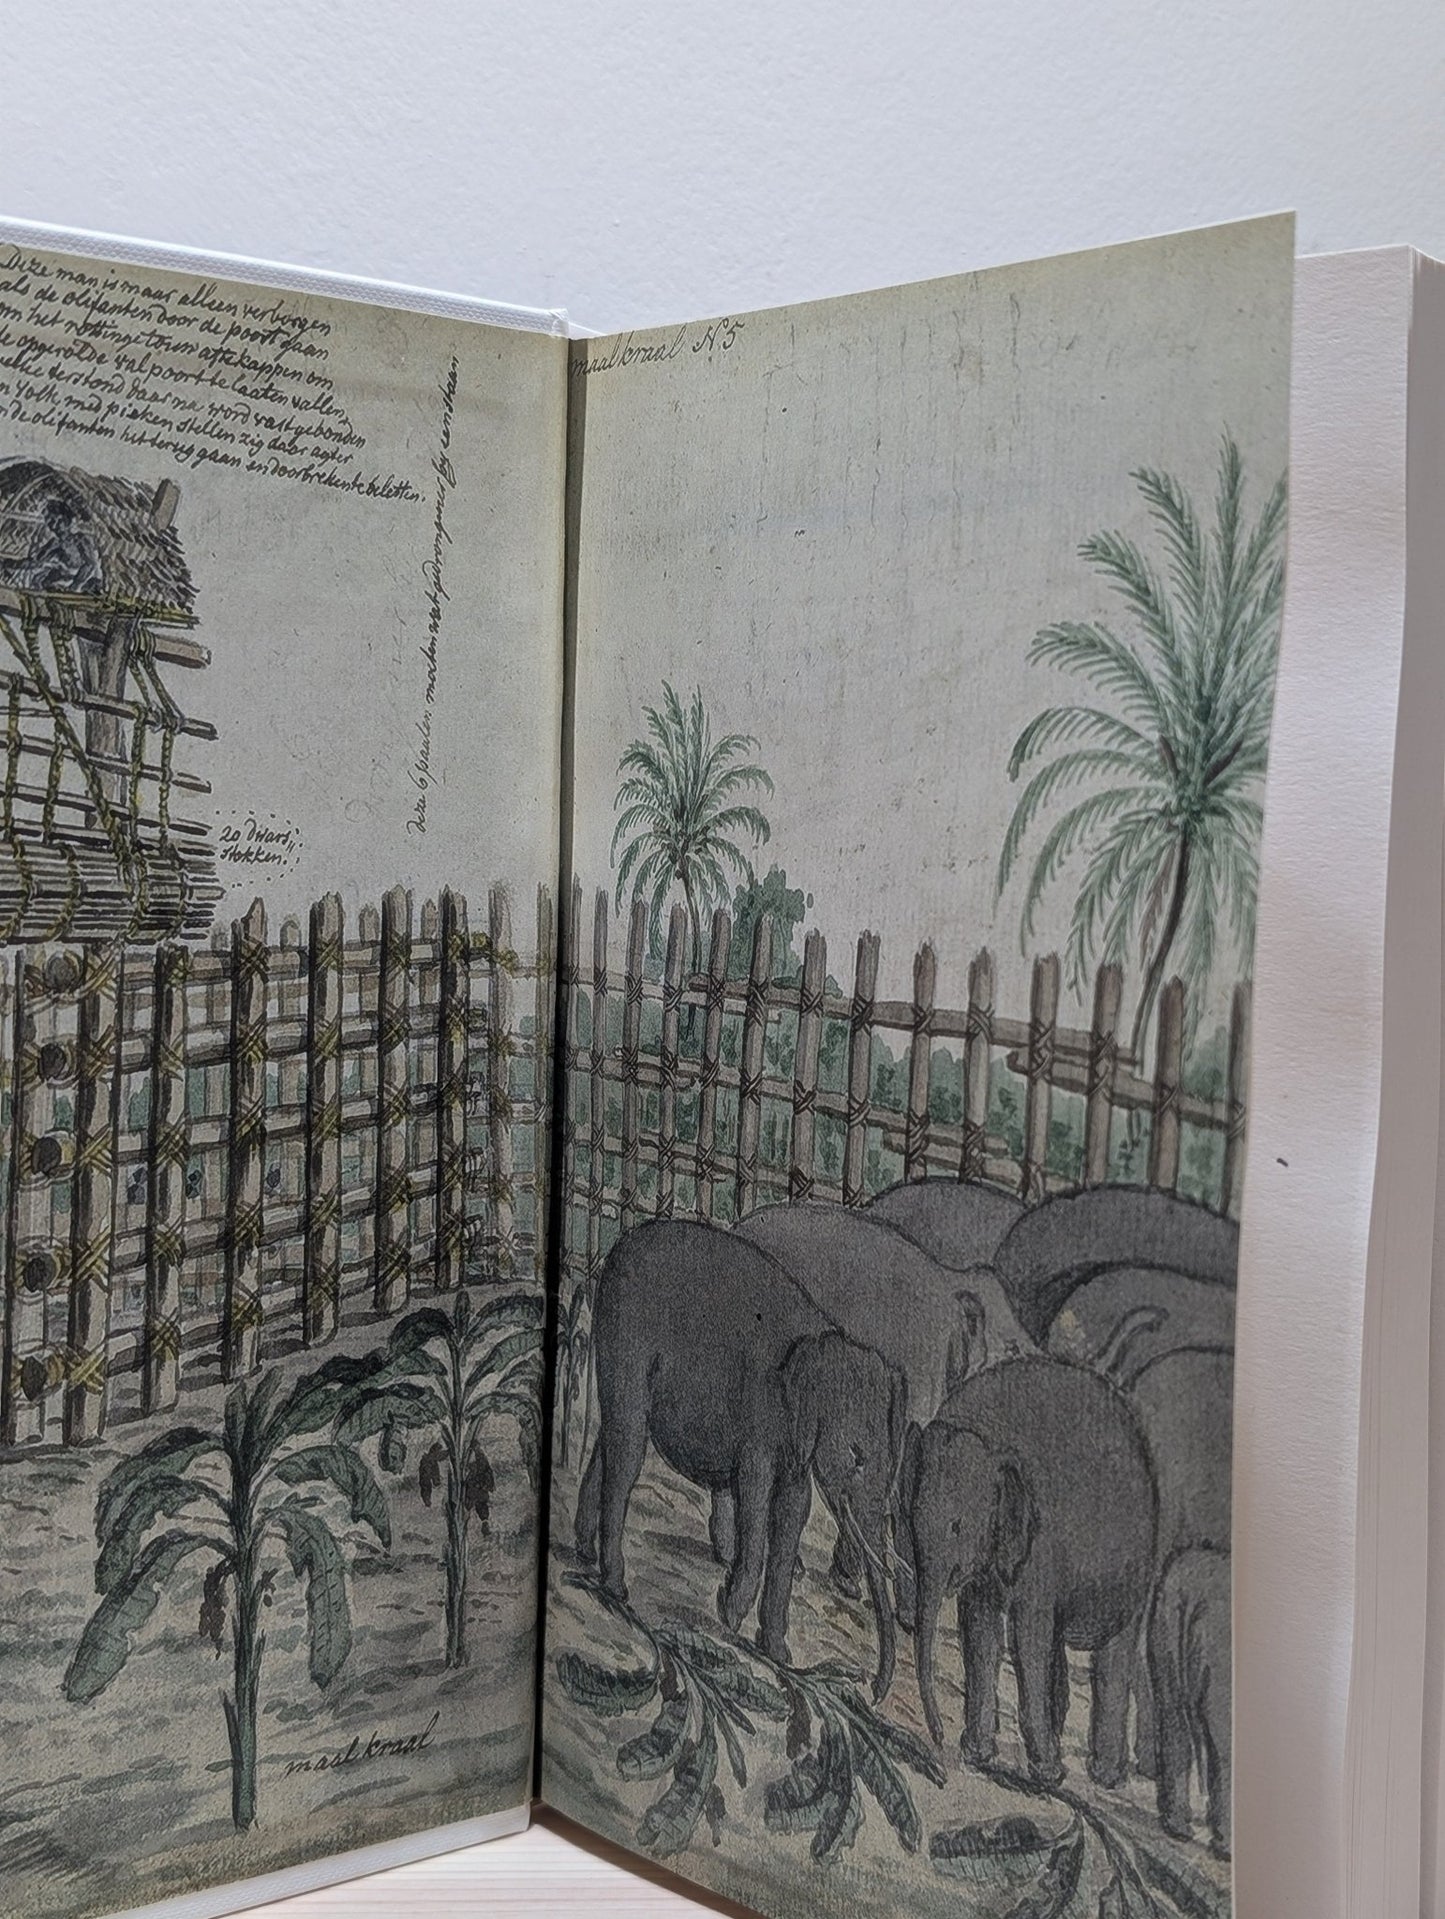 Deze man is maar alleen verborgen
als de olifanten door de poort gaan
om het rottinge touw aftekappen om
de opgerolde valpoort te laaten vallen,
welke terstond daar na word vastgebonden
en volk, med pieken stellen zig daar agter
om de olifanten het terug gaan en doorbreken te beletten.
deze 6 paalen moeten wat gedrongener by een staan
20 dwars
stokken.
maal kraal
maal kraal N 5